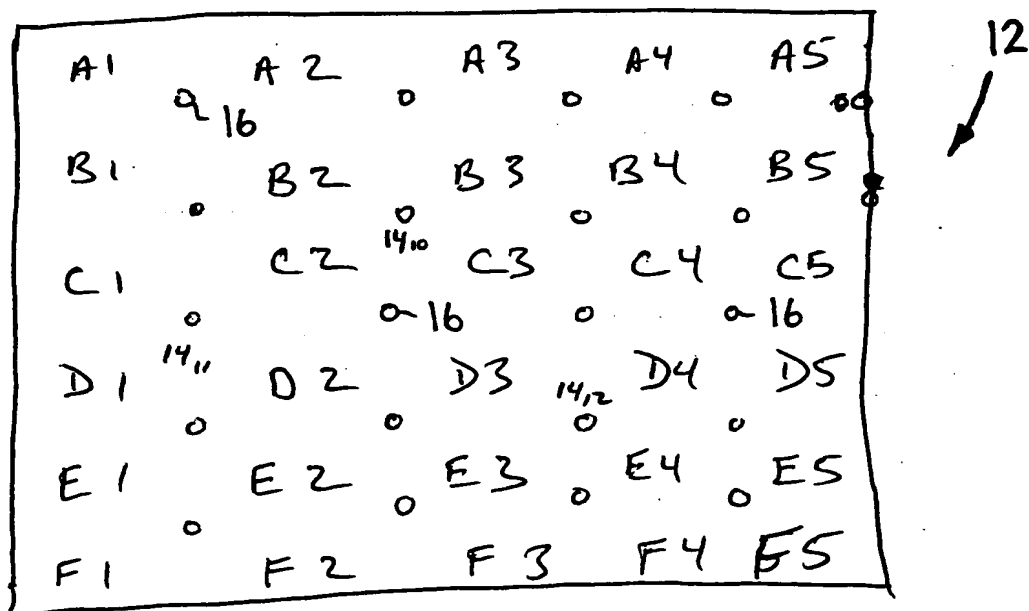 12
A1 A2 A3 A4 A5
16
B1 B2 B3 B4 B5
14₁₀
C1 C2 C3 C4 C5
16 16
14₁₁
D1 D2 D3 D4 D5
14₁₂
E1 E2 E3 E4 E5
F1 F2 F3 F4 F5